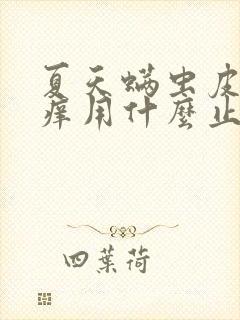 夏天螨虫皮
痒用什麼止
四葉荷